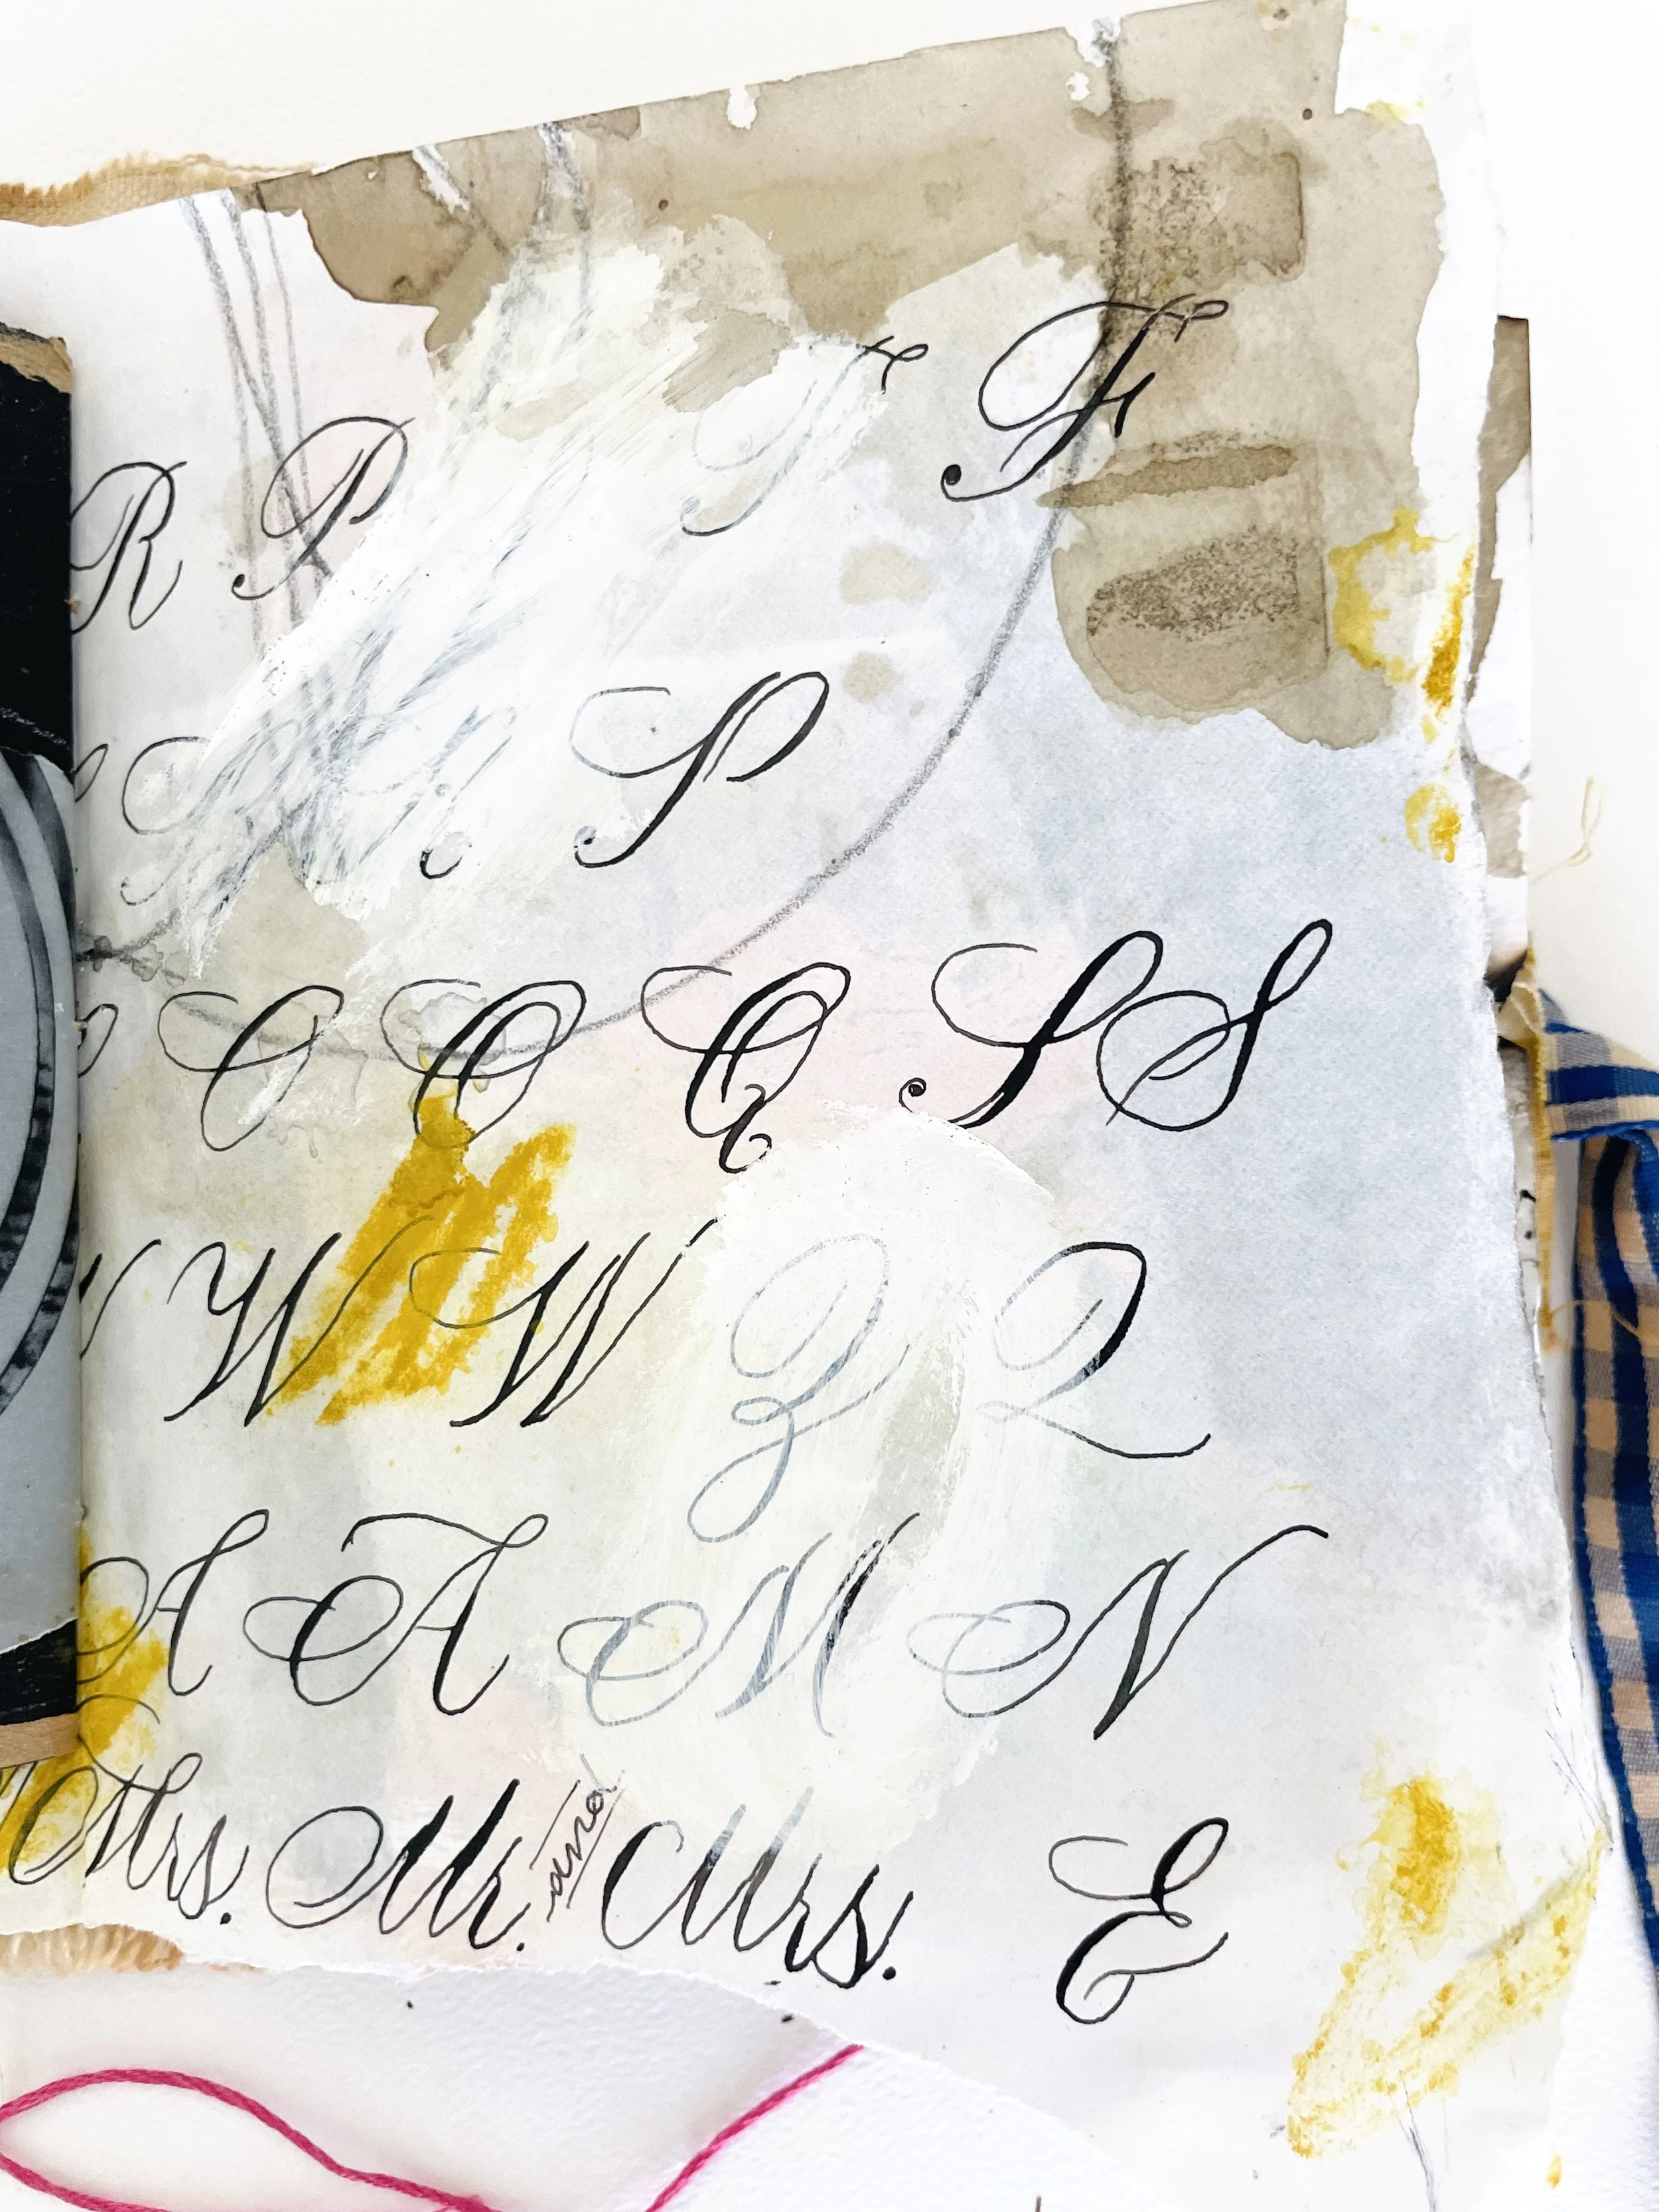 R P T F
P
O O Q S S
W W Z Q
A A M N
Mrs. Mr. and Mrs. E